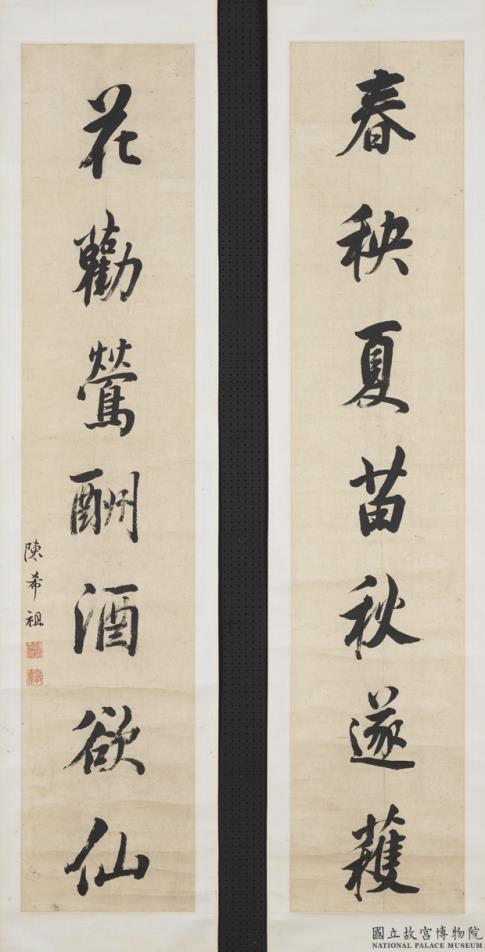 春秧夏苗秋遂蓶
花勸鶯酬酒欲仙
陳希祖
國立故宮博物院
NATIONAL PALACE MUSEUM